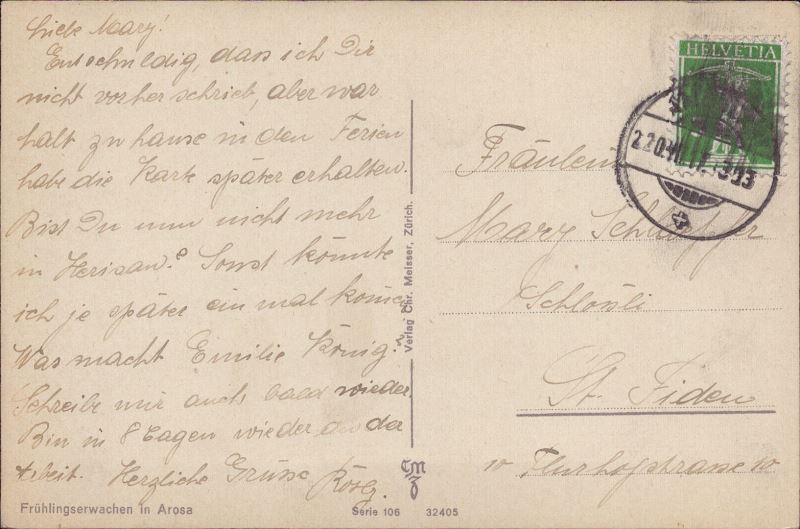 Liebe Mary!
Entschuldig, dass ich Dir
nicht vorher schrieb, aber war
halt zu hause in den Ferien
habe die Karte später erhalten.
Bist Du nun nicht mehr
in Herisau? Sonst könnte
ich je später ein mal
Was macht Emilie König?
Schreibe mir auch bald wieder.
Bin in 8 Tagen wieder an der
Arbeit. Herzliche Grüsse
Frühlingserwachen in Arosa
Verlag Chr. Meisser, Zürich.
CMZ
Serie 106 32405
HELVETIA
Fräulein
Mary
Schlössli
St. Fiden